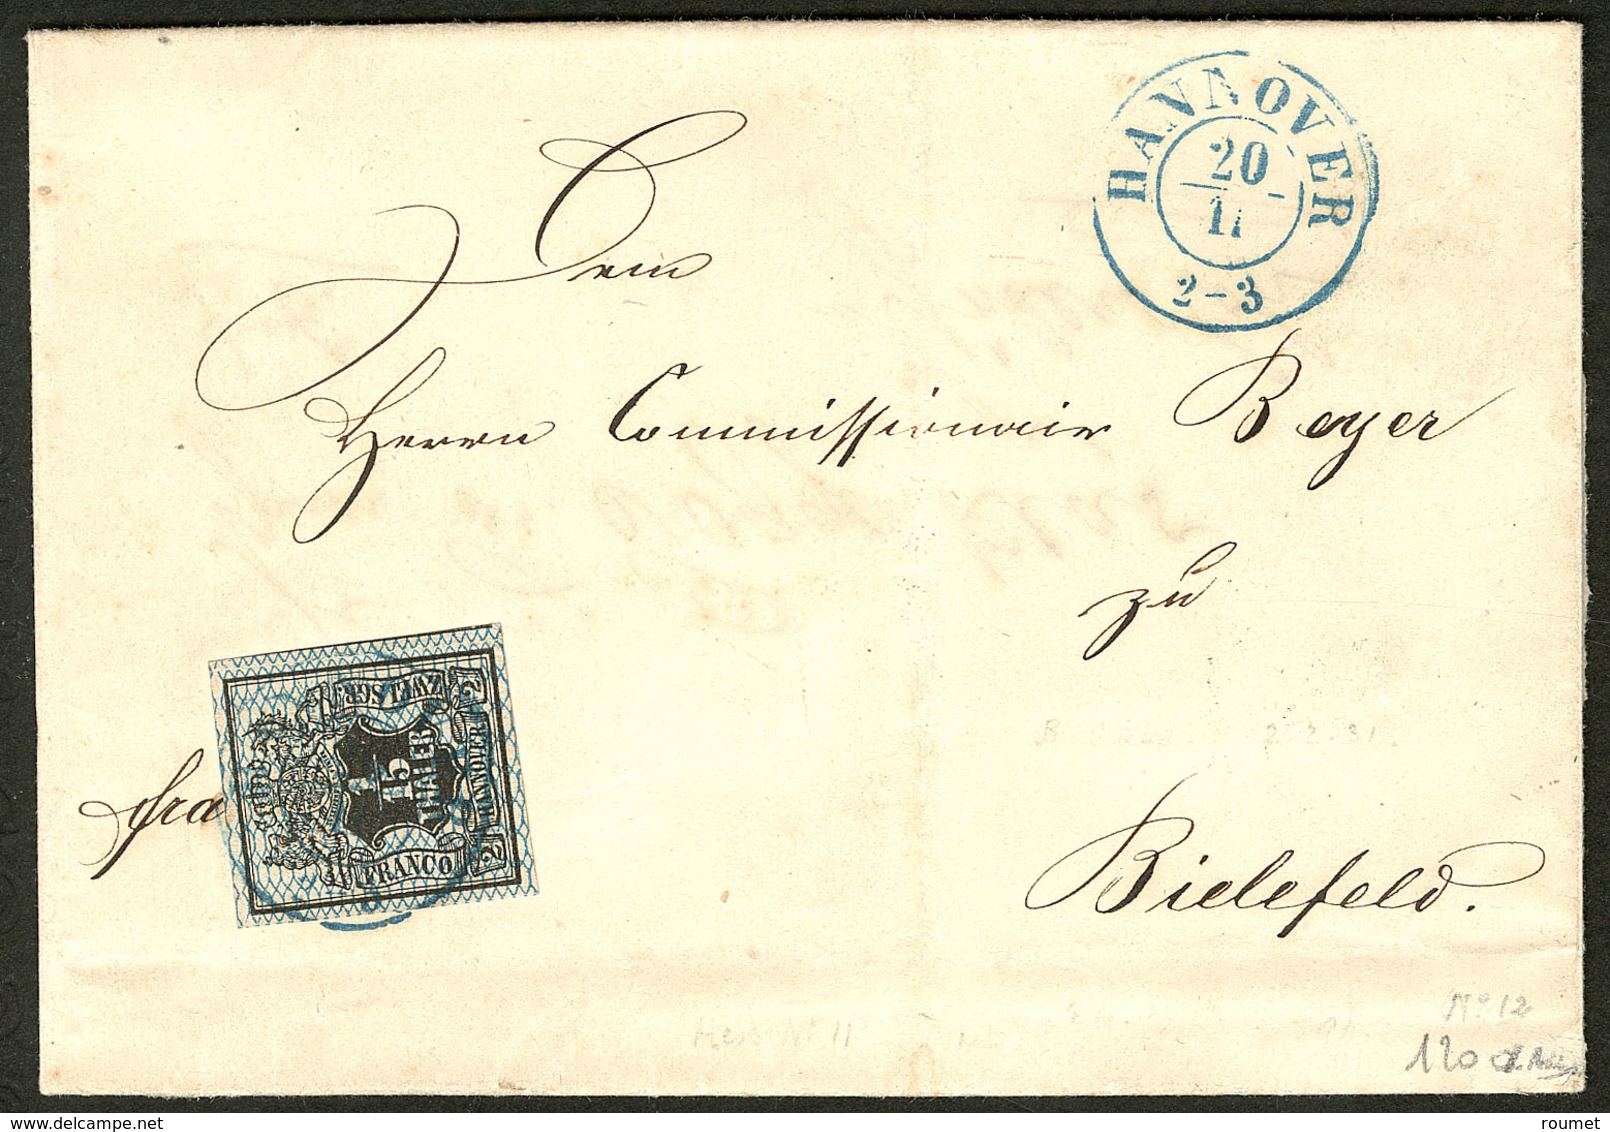 HANNOVER
20
11
2-3
Dem
Herrn Commissionair Beyer
zu
Bielefeld.
fra
ZWEI SGR.
2
HANNOVER
1/15
THALER
FRANCO
2
No 12
120
www.delcampe.net
roumet